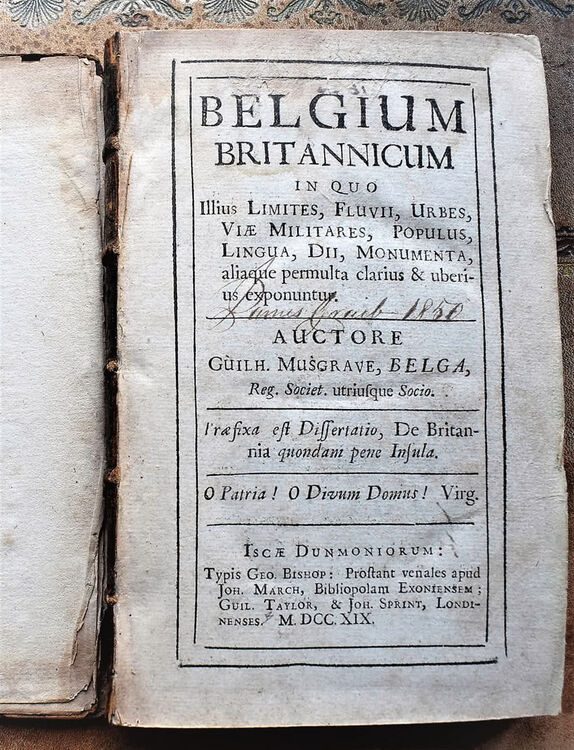 BELGIUM
BRITANNICUM
IN QUO
Illius LIMITES, FLUVII, URBES,
VIÆ MILITARES, POPULUS,
LINGUA, DII, MONUMENTA,
aliaque permulta clarius & uberi-
us exponuntur.
James 1850
AUCTORE
GUILH. MUSGRAVE, BELGA,
Reg. Societ. utriuſque Socio.
Præfixa eſt Diſſertatio, De Britan-
nia quondam pene Inſula.
O Patria! O Divum Domus! Virg.
ISCÆ DUNMONIORUM:
Typis GEO. BISHOP: Proſtant venales apud
JOH. MARCH, Bibliopolam EXONIENSEM;
GUIL. TAYLOR, & JOH. SPRINT, LONDI-
NENSES. M. DCC. XIX.